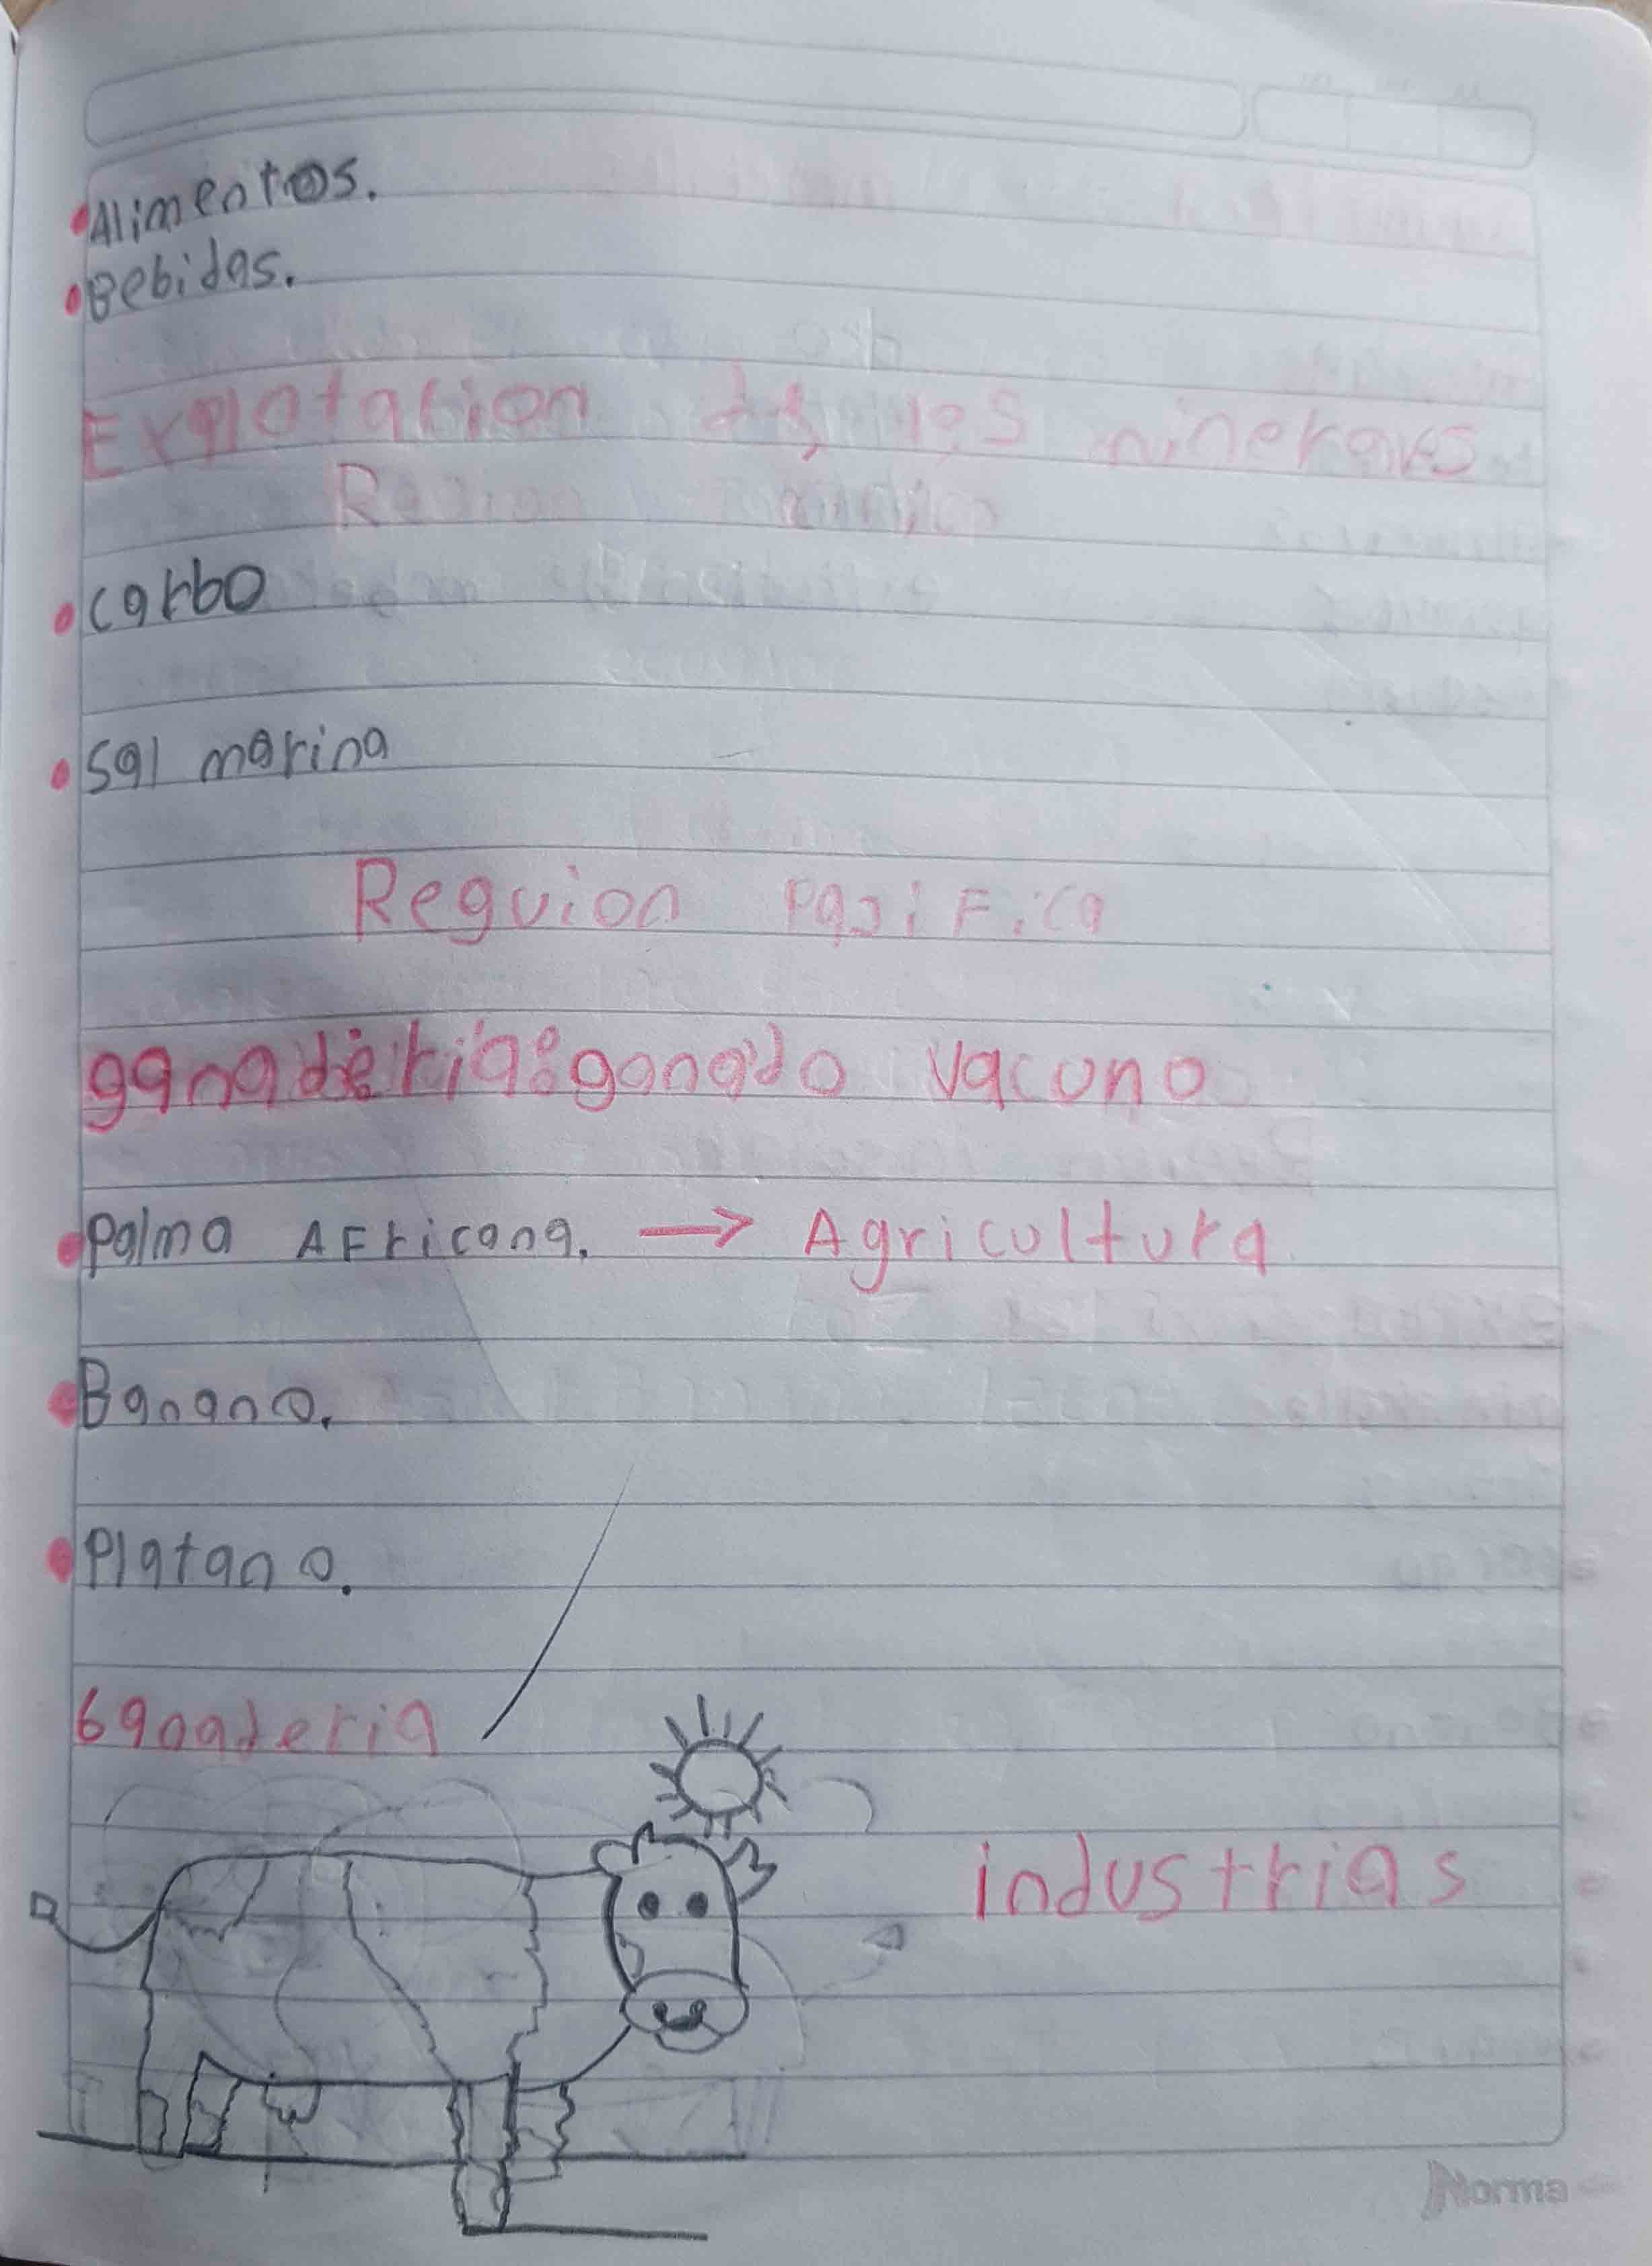 Alimentos.
Bebidas.
Explotacion
Region
carbo
sal marina
Reguion pasifica
ganaderia: ganado vacuno
palma Africana. → Agricultura
Banano.
Platano.
Ganaderia
industrias
Norma